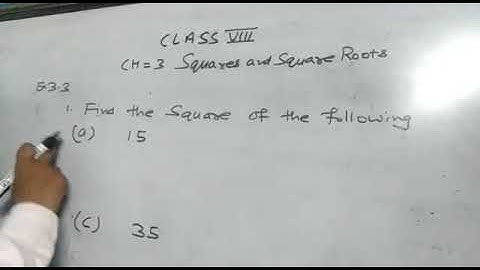 CLASS VIII
CH = 3 Squares and Square Roots
E.3.3
1. Find the Square of the following
(a) 15
(c) 35